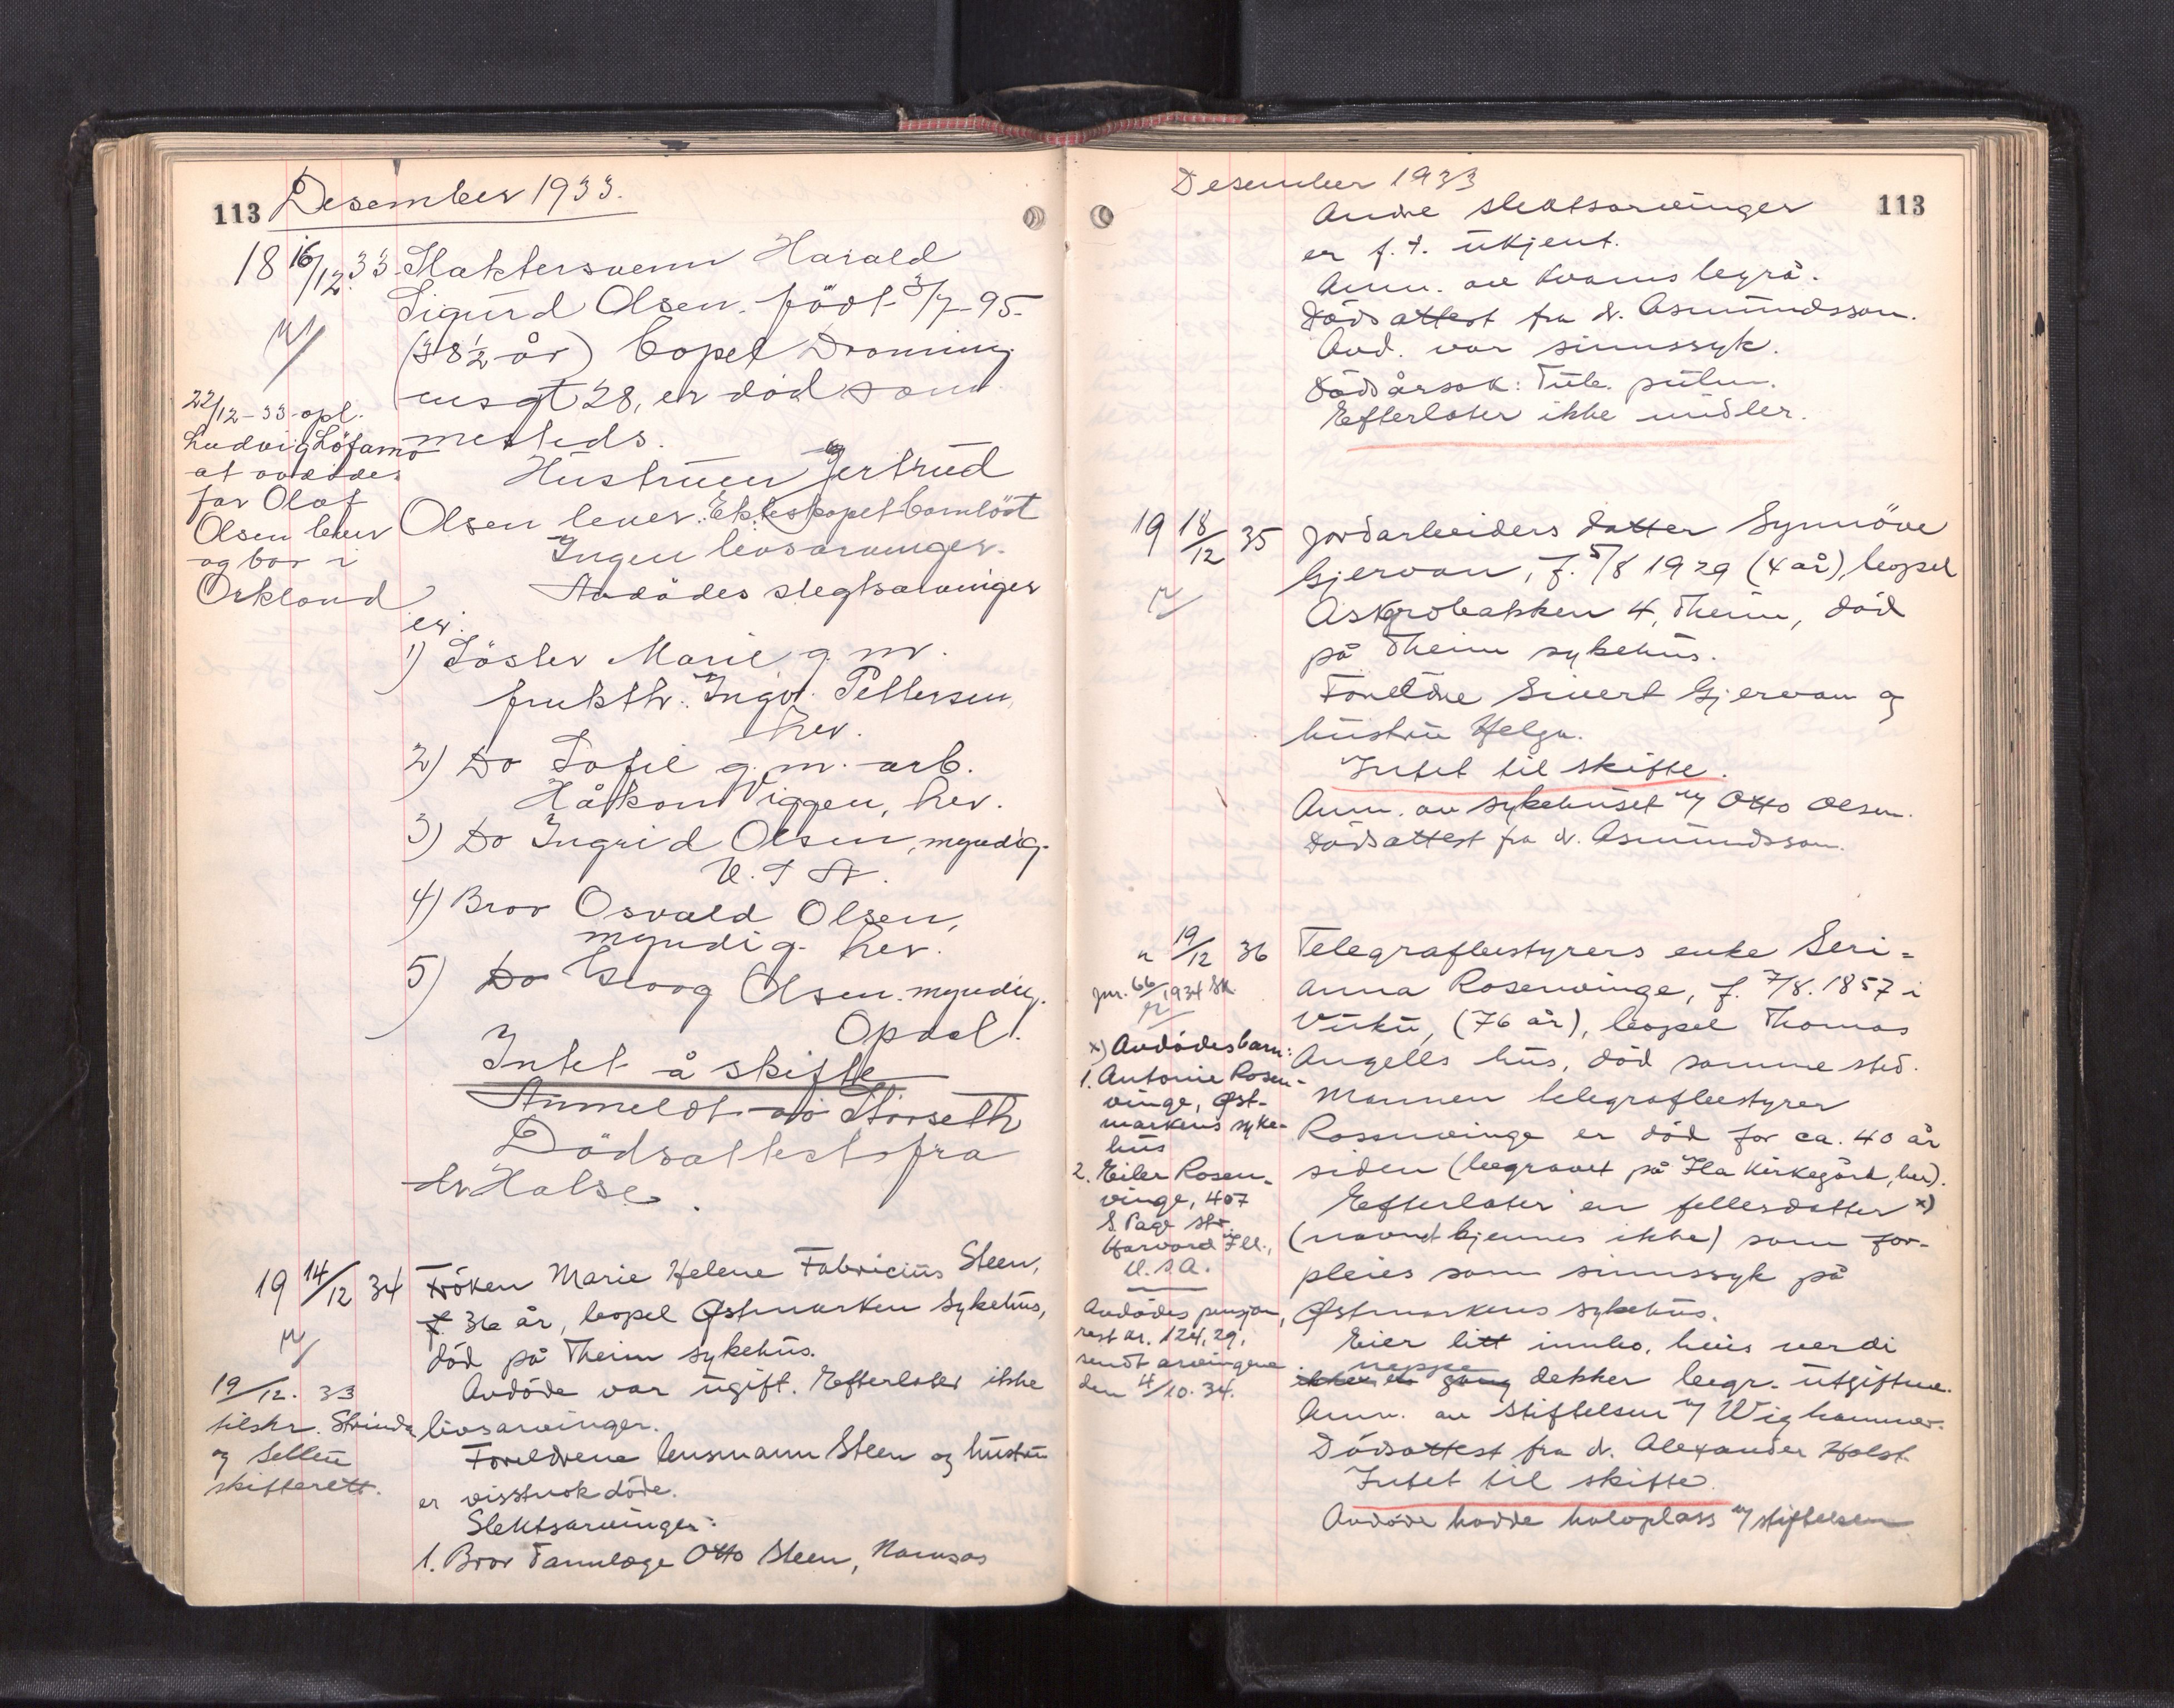 113 Desember 1933.
18 16/12 33 Slaktersvenn Harald
Sigurd Olsen. født 3/7-95-
(38½ år) bopel Dronning
ensgt 28, er død sam
mesteds.
Hustruen Gjertrud
Olsen lever. Ekteskapet barnløst
Ingen livsarvinger.
Avdødes slegtsarvinger
er:
22/12-33 opl.
Ludvig Løfamo
at avdødes
far Olaf
Olsen lever
og bor i
Orkland
1) Søster Marie g. m.
frukth. Ingv. Pettersen,
her.
2) Do Sofie g. m. arb.
Håkon Viggen, her.
3) Do Ingrid Olsen, myndig.
U. S A.
4) Bror Osvald Olsen,
myndig. her.
5) Do Georg Olsen. myndig.
Opdal.
Intet å skifte
Anmeldt av Storseth
Dødsattest fra
dr Halse.
19 14/12 34 Frøken Marie Helene Fabricius Steen,
f. 36 år, bopel Østmarken Sykehus,
død på Theim sykehus.
Avdøde var ugift. Efterlater ikke
livsarvinger.
Foreldrene lensmann Steen og hustru
er visstnok døde.
Slektsarvinger:
1. Bror Tannlæge Otto Steen, Namsos
19/12. 33
tilskr. Strinda
og Selbu
skifterett.
Desember 1933 113
Andre slektsarvinger
er f. t. ukjent.
Anm. av Kvams begrå.
Dødsattest fra dr. Asmundsson.
Avd. var sinnssyk.
Dødsårsak: Tub. pulm.
Efterlater ikke midler.
19 18/12 35 Jordarbeiders datter Synnöve
Gjervan, f. 5/8 1929 (4 år), bopel
Askgrobakken 4, Theim, död
på Theim sykehus.
Foreldre Sivert Gjervan og
hustru Helga.
Intet til skifte.
Anm. av sykehuset v/ Otto Olsen.
Dødsattest fra dr. Asmundsson.
" 19/12 36 Telegrafbestyrers enke Seri=
anna Rosenvinge, f. 7/8. 1857 i
Vuku, (76 år), bopel Thomas
Angells hus, död samme sted.
Mannen telegrafbestyrer
Rosenvinge er död for ca. 40 år
siden (begravet på Ila Kirkegård, her).
Efterlater en fellesdatter x)
(navnet kjennes ikke) som for-
pleies som sinnssyk på
Østmarkens sykehus.
Eier litt innbo, hvis verdi
neppe dekker begr. utgiftene.
Anm. av stiftelsen v/ Wighammer.
Dødsattest fra dr. Alexander Holst.
Intet til skifte.
Avdøde hadde halvplass v/ stiftelsen
Jnr. 66/1934 Sk.
x) Avdødes barn:
1. Antonie Rosen-
vinge, Øst-
markens syke-
hus
2. Eiler Rosen-
vinge, 407
S. Page str.
Harvard Ill.,
U.S.A.
Avdødes pensjon,
rest kr. 124,29,
sendt arvingene
den 4/10. 34.